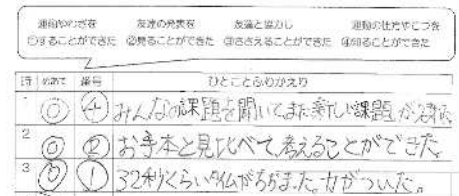 運動やわざを 友達の発表を 友達と協力し 運動の仕方やこつを
①することができた ②見ることができた ③ささえることができた ④知ることができた
時 めあて 番号 ひとことふりかえり
1 ◎ ④ みんなの課題を聞いてまた新しい課題が
2 ◎ ② お手本と見比べて考えることができた
3 ① 32秒くらいタイムがちぢまった 力がついた。